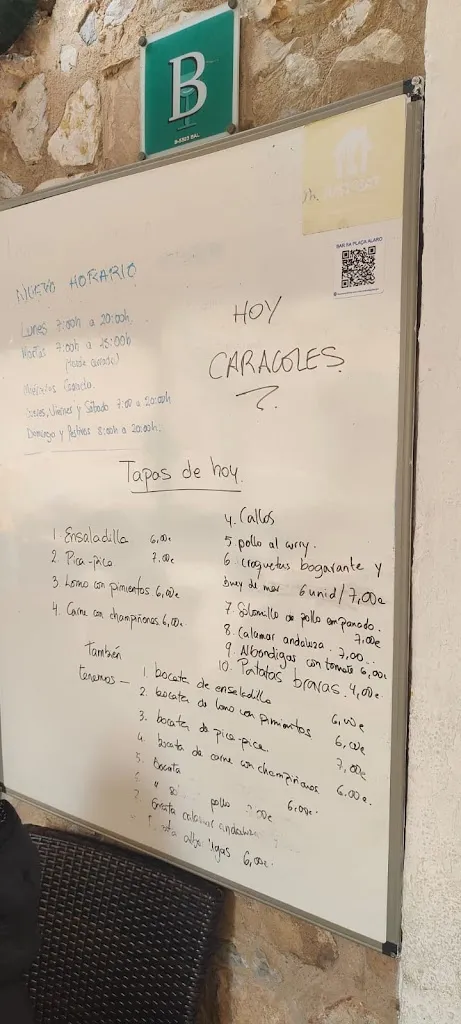 B
BAR SA PLAÇA ALARO
NUEVO HORARIO
Lunes 7:00h a 20:00h
Martes 7:00h a 15:00h
(tarde cerrado)
Miércoles Cerrado
Jueves, Viernes y Sábado 7:00 a 20:00h
Domingo y festivos 8:00h a 20:00h.
HOY
CARACOLES
Tapas de hoy.
1. Ensaladilla 6,00e
2. Pica-pica 7,00e
3. Lomo con pimientos 6,00e
4. Carne con champiñones 6,00e
4. Callos
5 pollo al curry.
6 croquetas bogarante y
buey de mar 6 unid/7,00e
7. Solomillo de pollo empanado.
7,00e
8. Calamar andaluza. 7,00...
9. Albondigas con tomate 6,00e
10. Patatas bravas. 4,00e
También
tenemos—
1. bocata de ensaladilla 6,00e
2. bocata de lomo con pimientos 6,00e
3. bocata de pica-pica 7,00e
4. bocata de carne con champiñones 6.00e.
5. Bocata 6,00e.
pollo
calamar andaluza
6,00e.